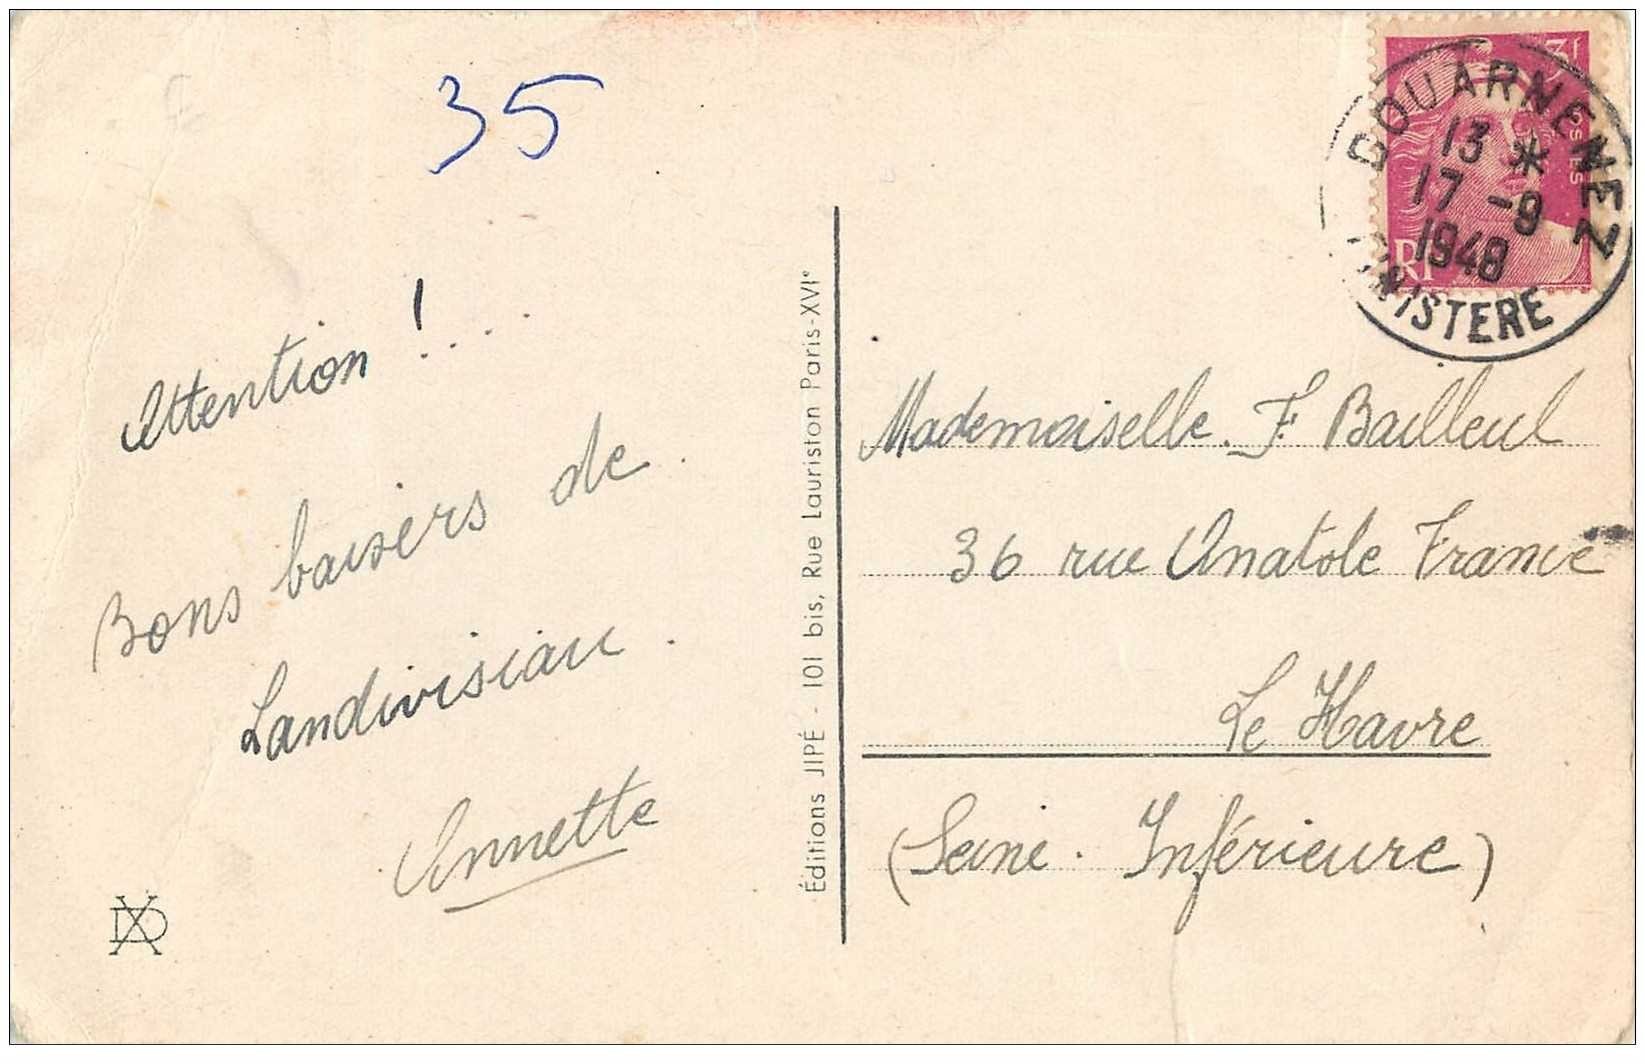 35
3f
Postes
RF
DOUARNENEZ
13 *
17 -9
1948
FINISTERE
Attention !...
Bons baisers de
Landivisiau.
Annette
Éditions JIPÉ - 101 bis, Rue Lauriston Paris-XVIe
Mademoiselle. F. Bailleul
36 rue Anatole France
Le Havre
(Seine. Inférieure)